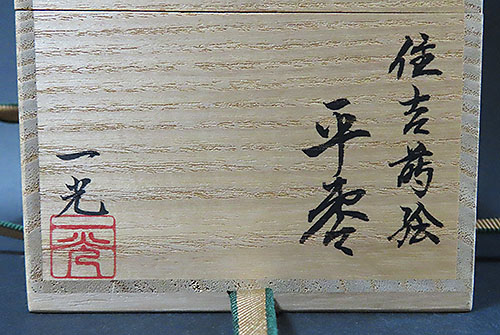 住吉蒔絵
平棗
一光
一光